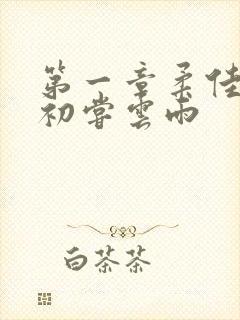 第一章柔佳
初嘗雲雨
白茶茶